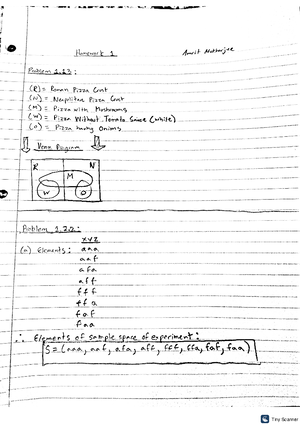 Homework 1
Amrit Mukherjee
Problem 1.1.3:
(R) = Roman Pizza Cont
(N) = Neapolitan Pizza Cont
(M) = Pizza with Mushrooms
(W) = Pizza Without Tomato Sauce (white)
(O) = Pizza having Onions
Venn Diagram
R N
M
W O
Problem 1.2.2:
x y z
(a) Elements: aaa
aaf
afa
aff
fff
ffa
faf
faa
∴ Elements of sample space of experiment:
S = {aaa, aaf, afa, aff, fff, ffa, faf, faa}
Tiny Scanner